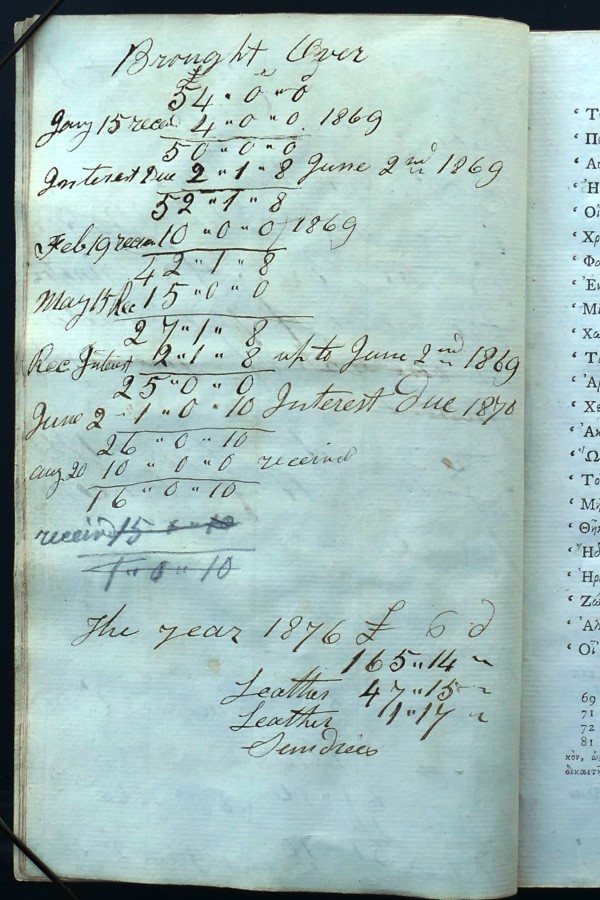 Brought Over
£ s d
54 " 0 " 0
Jany 15 recd 4 " 0 " 0. 1869
50 " 0 " 0
Interest Due 2 " 1 " 8 June 2nd 1869
52 " 1 " 8
Feb 19 recd 10 " 0 " 0 / 1869
42 " 1 " 8
May 15 Rec 15 " 0 " 0
27 " 1 " 8
Rec Interest 2 " 1 " 8 up to June 2nd 1869
25 " 0 " 0
June 2 1 " 0 " 10 Interest Due 1870
26 " 0 " 10
aug 20 10 " 0 " 0 received
16 " 0 " 10
received 15 " 0 " 10
1 " 0 " 10
The year 1876 £ S d
165 " 14 ~
Leather 47 " 15 ~
Leather 11 " 17 ~
Sundries
‘ Το
‘ Πε
‘ Ἡ
‘ Οἱ
‘ Χρ
‘ Φα
‘ Ἐν
‘ Με
‘ Χω
‘ Τε
‘ Ἀρ
‘ Χε
‘ Ἀκ
‘ Ὡ
‘ Το
‘ Μὴ
‘ Θῆκ
‘ Ἡδ
‘ Ἡρ
‘ Ζώ
‘ Ἀλ
‘ Οἵ
69
71
72
81